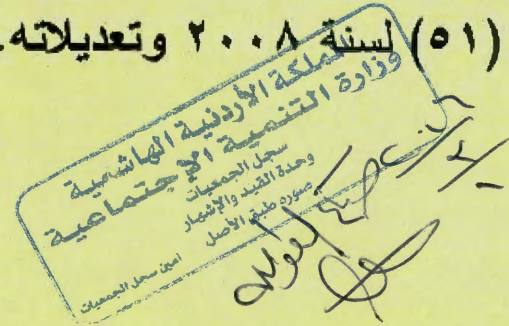 (٥١) لسنة ٢٠٠٨ وتعديلاته.
المملكة الأردنية الهاشمية
وزارة التنمية الاجتماعية
سجل الجمعيات
وحدة القيد والإشهار
صورة طبق الأصل
امين سجل الجمعيات